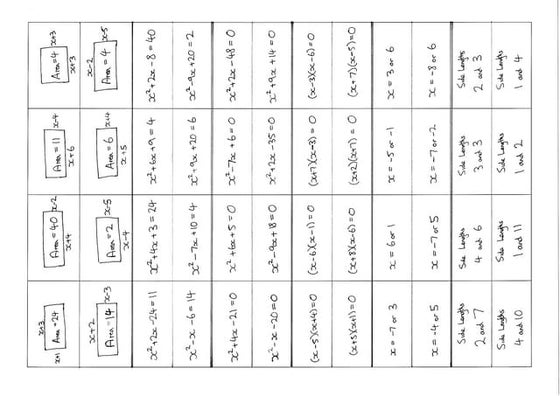 x+3
x+1 Area = 24
x-2
x+4 Area = 40
x-4
x+6 Area = 11
x+3
x+3 Area = 4
x+2
Area = 14 x-3
x-5
Area = 2 x-4
x+4
Area = 6 x+5
x-2
Area = 4 x-5
x²+2x-24=11
x²+4x+3=24
x²+6x+9=4
x²+2x-8=40
x²-x-6=14
x²-7x+10=4
x²+9x+20=6
x²-9x+20=2
x²+4x-21=0
x²+6x+5=0
x²-7x+6=0
x²+2x-48=0
x²-x-20=0
x²-9x+18=0
x²+2x-35=0
x²+9x+14=0
(x-5)(x+4)=0
(x-6)(x-1)=0
(x+7)(x-3)=0
(x-3)(x-6)=0
(x+5)(x+1)=0
(x+8)(x-6)=0
(x+2)(x+7)=0
(x+7)(x-5)=0
x=-7 or 3
x=6 or 1
x=-5 or -1
x=3 or 6
x=-4 or 5
x=-7 or 5
x=-7 or -2
x=-8 or 6
Side Lengths
2 and 7
Side Lengths
4 and 6
Side Lengths
3 and 3
Side Lengths
2 and 3
Side Lengths
4 and 10
Side Lengths
1 and 11
Side Lengths
1 and 2
Side Lengths
1 and 4